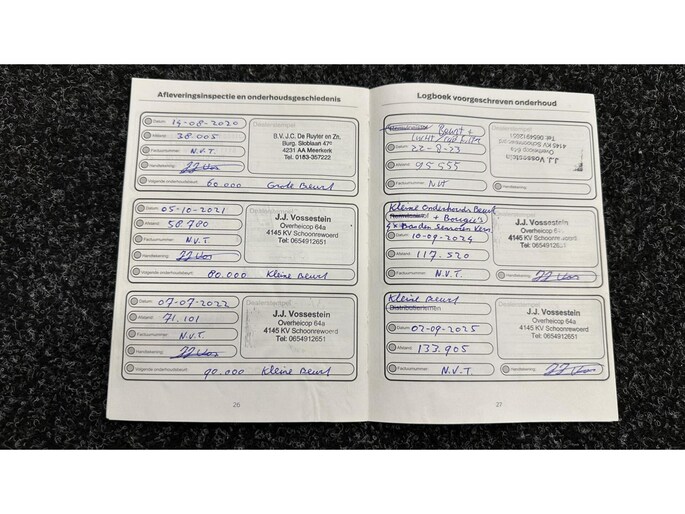 Afleveringsinspectie en onderhoudsgeschiedenis
Datum: 14-08-2020
Afstand: 38.005
Factuurnummer: N.V.T.
Handtekening:
Volgende onderhoudsbeurt: 60.000 Grote Beurt
Dealerstempel
B.V. J.C. De Ruyter en Zn.
Burg. Sloblaan 47
4231 AA Meerkerk
Tel. 0183-357222
Datum: 05-10-2021
Afstand: 58.780
Factuurnummer: N.V.T.
Handtekening:
Volgende onderhoudsbeurt: 80.000 Kleine Beurt
J.J. Vossestein
Overheicop 64a
4145 KV Schoonrewoerd
Tel: 0654912651
Datum: 07-07-2022
Afstand: 71.101
Factuurnummer: N.V.T.
Handtekening:
Volgende onderhoudsbeurt: 90.000 Kleine Beurt
Dealerstempel
J.J. Vossestein
Overheicop 64a
4145 KV Schoonrewoerd
Tel: 0654912651
26
Logboek voorgeschreven onderhoud
Beurt +
Datum: 22-8-23
Afstand: 95555
Factuurnummer: NVT
Dealerstempel
J.J. Vossestein
Overheicop 64a
4145 KV Schoonrewoerd
Tel: 0654912651
Kleine Onderhouds Beurt
+ Bougie's
4x Banden Sensoren
Datum: 10-09-2024
Afstand: 117.520
Factuurnummer: N.V.T.
Handtekening:
J.J. Vossestein
Overheicop 64a
4145 KV Schoonrewoerd
Tel: 0654912651
Kleine Beurt
Distributieriemen
Datum: 02-09-2025
Afstand: 133.905
Factuurnummer: N.V.T.
Handtekening:
Dealerstempel
J.J. Vossestein
Overheicop 64a
4145 KV Schoonrewoerd
Tel: 0654912651
27